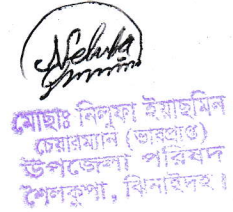 Nelufa
মোছাঃ নিলুফা ইয়াছমিন
চেয়ারম্যান (ভারপ্রাপ্ত)
উপজেলা পরিষদ
শৈলকুপা, ঝিনাইদহ।